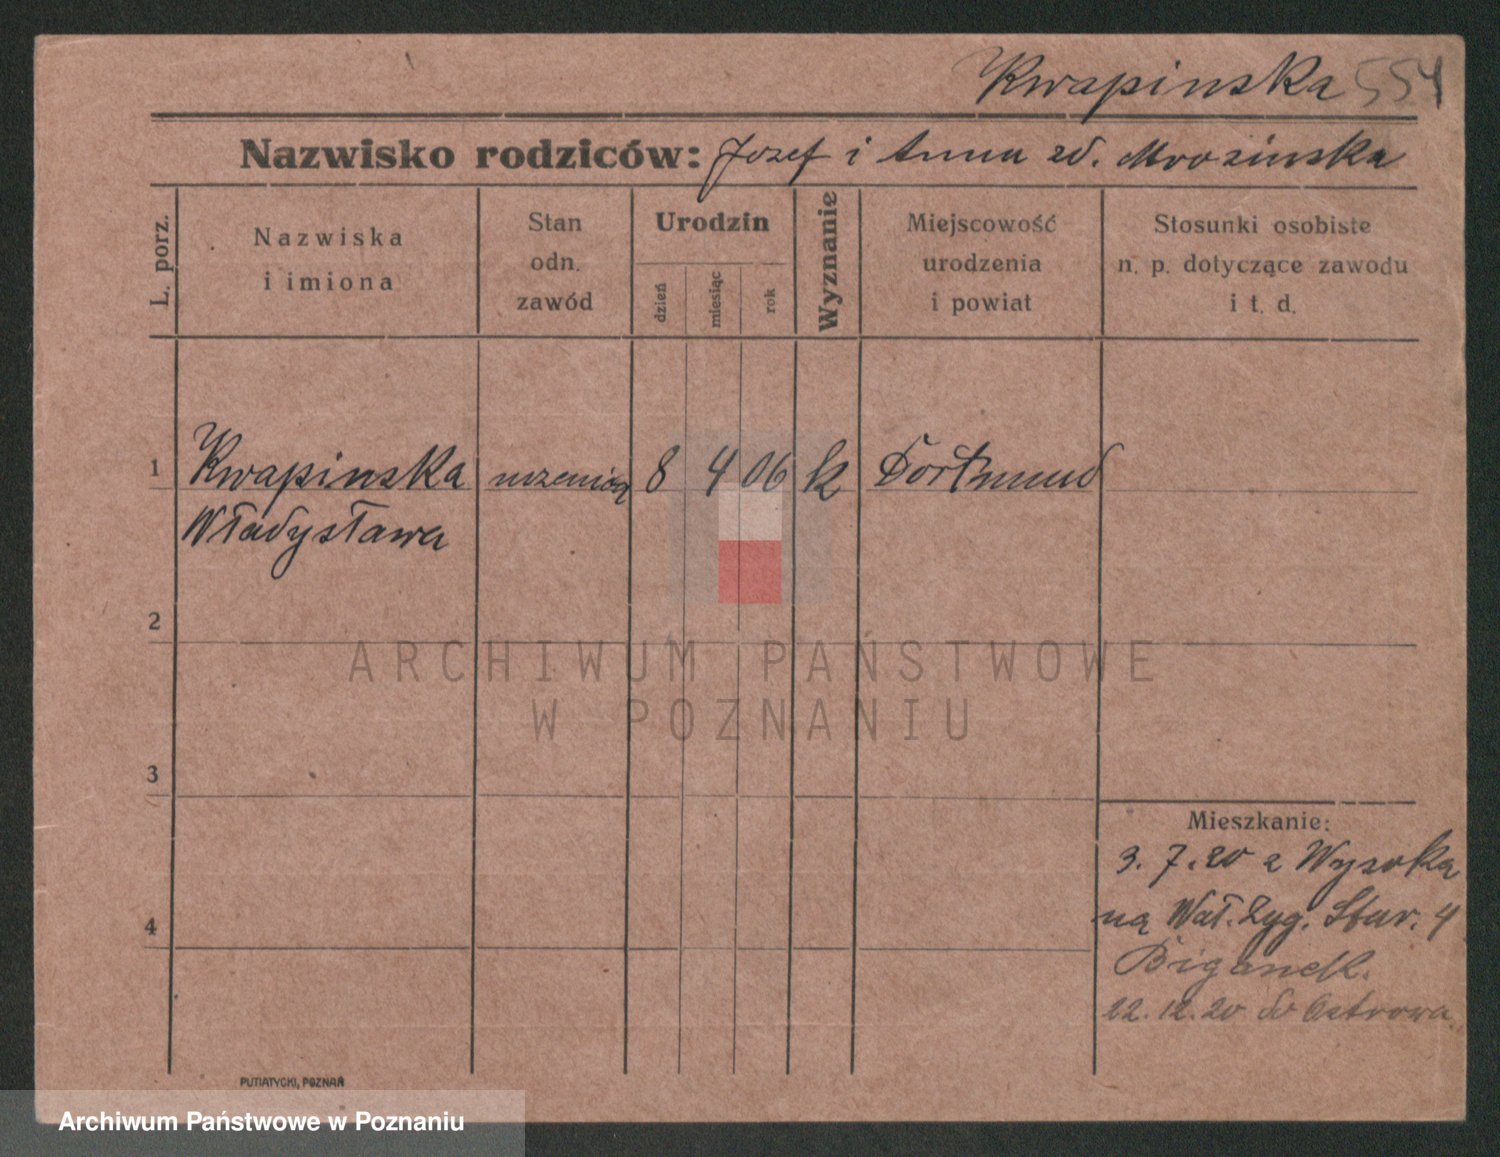 Kwapinska 554
Nazwisko rodziców: Jozef i Anna zd. Mrozinska
L. porz.
Nazwiska
i imiona
Stan
odn.
zawód
Urodzin
dzień
miesiąc
rok
Wyznanie
Miejscowość
urodzenia
i powiat
Stosunki osobiste
n. p. dotyczące zawodu
i t. d.
1 Kwapinska uczenica 8 4 06 k Dortmund
Władysława
2
ARCHIWUM PAŃSTWOWE
W POZNANIU
3
Mieszkanie:
3. 7. 20 z Wysoka
na Wał. Zyg. Star. 4
4
22. 12. 20 do Ostrowa
PUTIATYCKI, POZNAŃ
Archiwum Państwowe w Poznaniu